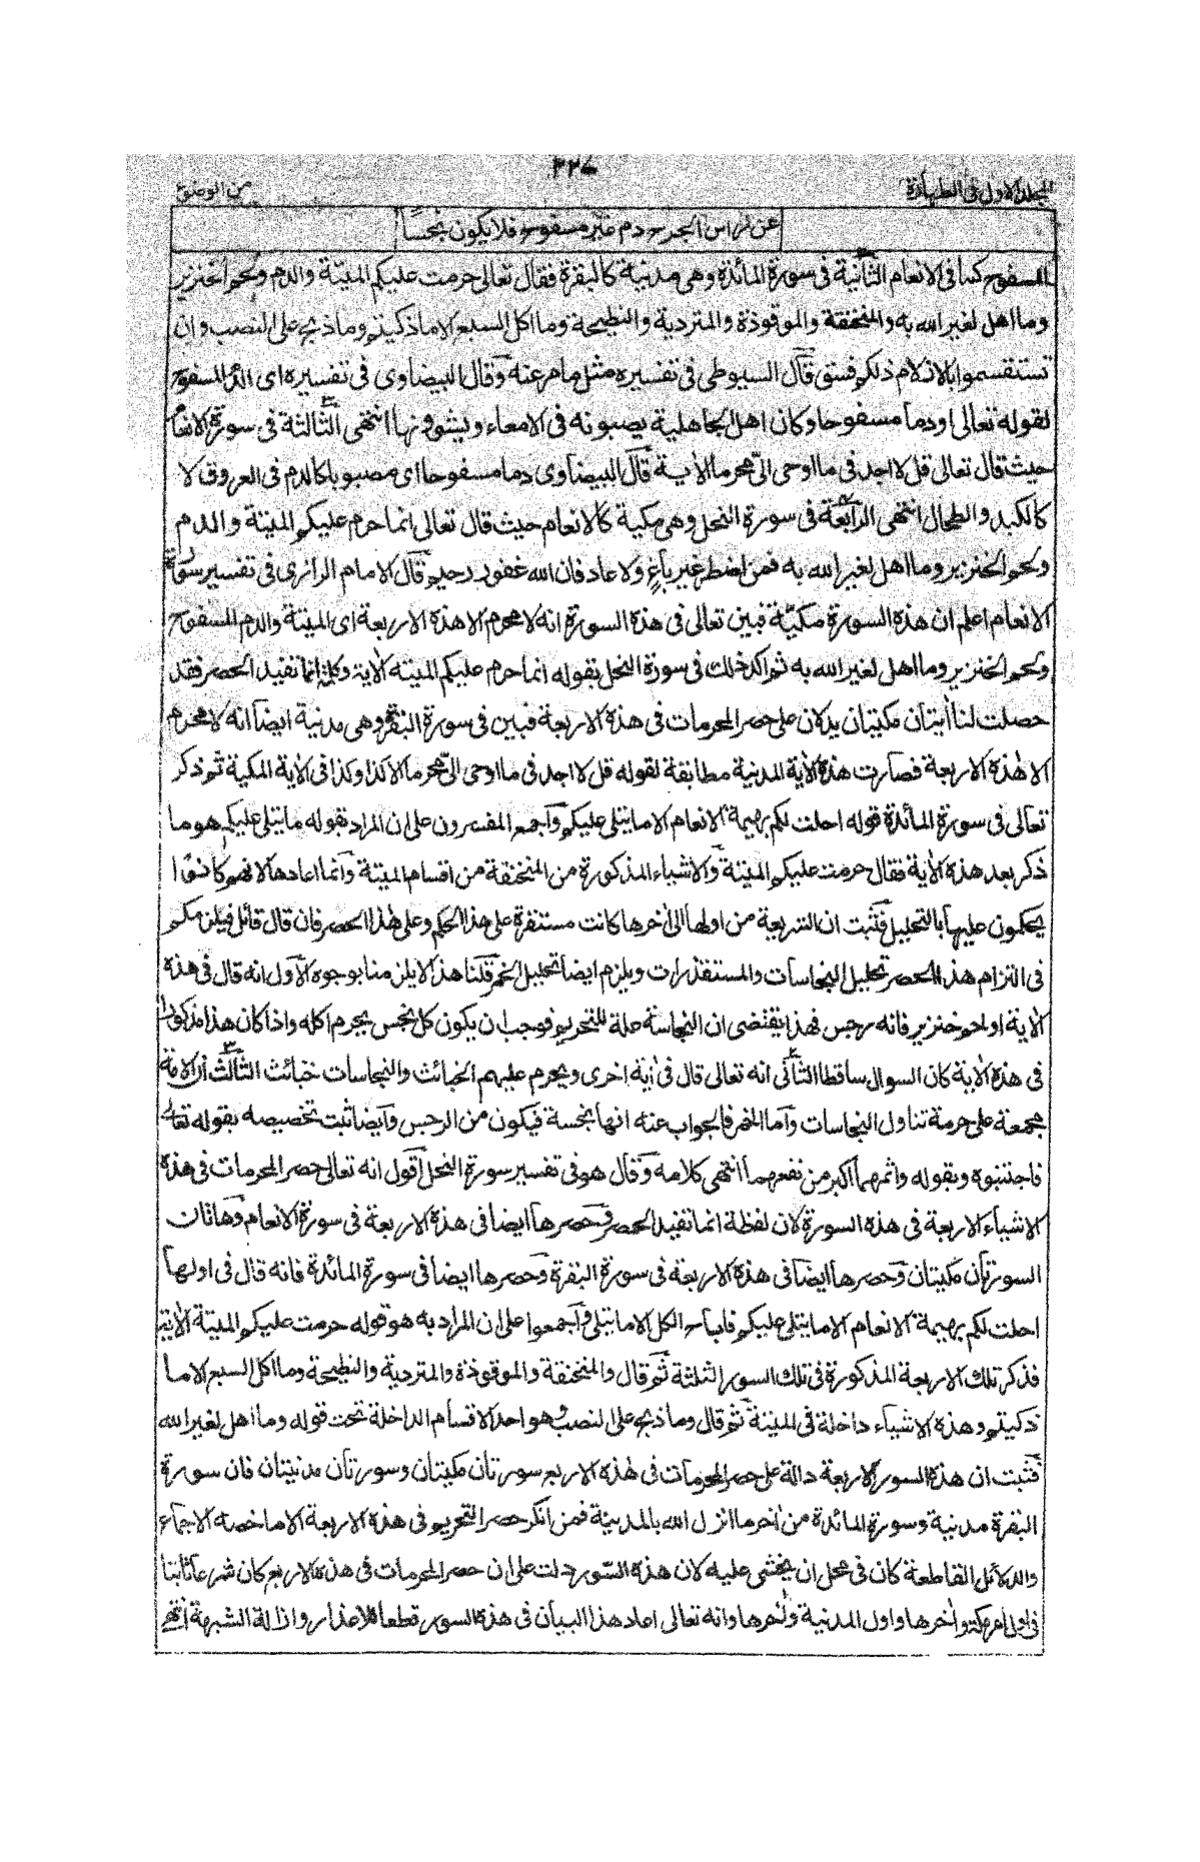 ٢٢٧
المجلد الاول فی الطهارة
من الوضوء
عن راس الجرح دم غیر مسفوح فلا یكون نجسًا
المسفوح كما فی الانعام الثانیة فی سورة المائدة وهی مدنیة كالبقرة فقال تعالی حرمت علیكم المیتة والدم ولحم الخنزیر
وما اهل لغیر الله به والمنخنقة والموقوذة والمتردیة والنطیحة وما اكل السبع الا ما ذكیتم وما ذبح علی النصب وان
تستقسموا بالازلام ذلكم فسق قال السیوطی فی تفسیره مثل ما مر عنه وقال البیضاوی فی تفسیره ای الدم المسفوح
لقوله تعالی او دما مسفوحا وكان اهل الجاهلیة یصبونه فی الامعاء ویشوونها انتهی الثالثة فی سورة الانعام
حیث قال تعالی قل لا اجد فی ما اوحی الیّ محرما الاٰیة قال البیضاوی دما مسفوحا ای مصبوبا كالدم فی العروق لا
كالكبد والطحال انتهی الرابعة فی سورة النحل وهی مكیة كالانعام حیث قال تعالی انما حرم علیكم المیتة والدم
ولحم الخنزیر وما اهل لغیر الله به فمن اضطر غیر باغٍ ولا عاد فان الله غفور رحیم قال الامام الرازی فی تفسیر سورة
الانعام اعلم ان هذه السورة مكیّة فبین تعالی فی هذه السورة انه لا محرم الا هذه الاربعة ای المیتة والدم المسفوح
ولحم الخنزیر وما اهل لغیر الله به ثم اكد ذلك فی سورة النحل بقوله انما حرم علیكم المیتة الاٰیة وكلمة انما تفید الحصر فقد
حصلت لنا اٰیتان مكیتان یدلان علی حصر المحرمات فی هذه الاربعة فبین فی سورة البقرة وهی مدنیة ایضا انه لا محرم
الا هٰذه الاربعة فصارت هذه الاٰیة المدنیة مطابقة لقوله قل لا اجد فی ما اوحی الیّ محرما الا كذا وكذا فی الاٰیة المكیة ثم ذكر
تعالی فی سورة المائدة قوله احلت لكم بهیمة الانعام الا ما یتلی علیكم واجمع المفسرون علی ان المراد بقوله ما یتلی علیكم هو ما
ذكر بعد هذه الاٰیة فقال حرمت علیكم المیتة والاشیاء المذكورة من المنخنقة من اقسام المیتة وانما اعادها لانهم كانوا
یحكمون علیها بالتحلیل فثبت ان الشریعة من اولها الی اٰخرها كانت مستقرة علی هذا الحكم وعلی هٰذا الحصر فان قال قائل فیلزمكم
فی التزام هذا الحصر تحلیل النجاسات والمستقذرات ویلزم ایضا تحلیل الخمر قلنا هذا لا یلزمنا بوجوه الاول انه قال فی هذه
الاٰیة او لحم خنزیر فانه رجس فهذا یقتضی ان النجاسة علة للتحریم فوجب ان یكون كل نجس یحرم اكله واذا كان هذا مذكورا
فی هذه الاٰیة كان السوال ساقطا الثانی انه تعالی قال فی اٰیة اخری ویحرم علیهم الخبائث والنجاسات خبائث الثالث ان الامة
مجمعة علی حرمة تناول النجاسات واما الخمر فالجواب عنه انها نجسة فیكون من الرجس وایضا ثبت تخصیصه بقوله تعالی
فاجتنبوه وبقوله واثمهما اكبر من نفعهما انتهی كلامه وقال هو فی تفسیر سورة النحل اقول انه تعالی حصر المحرمات فی هذه
الاشیاء الاربعة فی هذه السورة لان لفظة انما تفید الحصر وحصرها ایضا فی هذه الاربعة فی سورة الانعام وهاتان
السورتان مكیتان وحصرها ایضا فی هذه الاربعة فی سورة البقرة وحصرها ایضا فی سورة المائدة فانه قال فی اولها
احلت لكم بهیمة الانعام الا ما یتلی علیكم فاباح الكل الا ما یتلی واجمعوا علی ان المراد به هو قوله حرمت علیكم المیتة الاٰیة
فذكر تلك الاربعة المذكورة فی تلك السور الثلثة ثم قال والمنخنقة والموقوذة والمتردیة والنطیحة وما اكل السبع الا ما
ذكیتم وهذه الاشیاء داخلة فی المیتة ثم قال وما ذبح علی النصب وهو احد الاقسام الداخلة تحت قوله وما اهل لغیر الله
فثبت ان هذه السور الاربعة دالة علی حصر المحرمات فی هٰذه الاربع سورتان مكیتان وسورتان مدنیتان فان سورة
البقرة مدنیة وسورة المائدة من اٰخر ما انزل الله بالمدینة فمن انكر حصر التحریم فی هذه الاربعة الا ما خصه الاجماع
والدلائل القاطعة كان فی محل ان یخشی علیه لان هذه السور دلت علی ان حصر المحرمات فی هذه الاربع كان شرعا ثابتا
فی اول امر مكة واٰخرها واول المدنیة واٰخرها وانه تعالی اعاد هذا البیان فی هذه السور قطعا للاعذار وازالة الشبهة انتهی